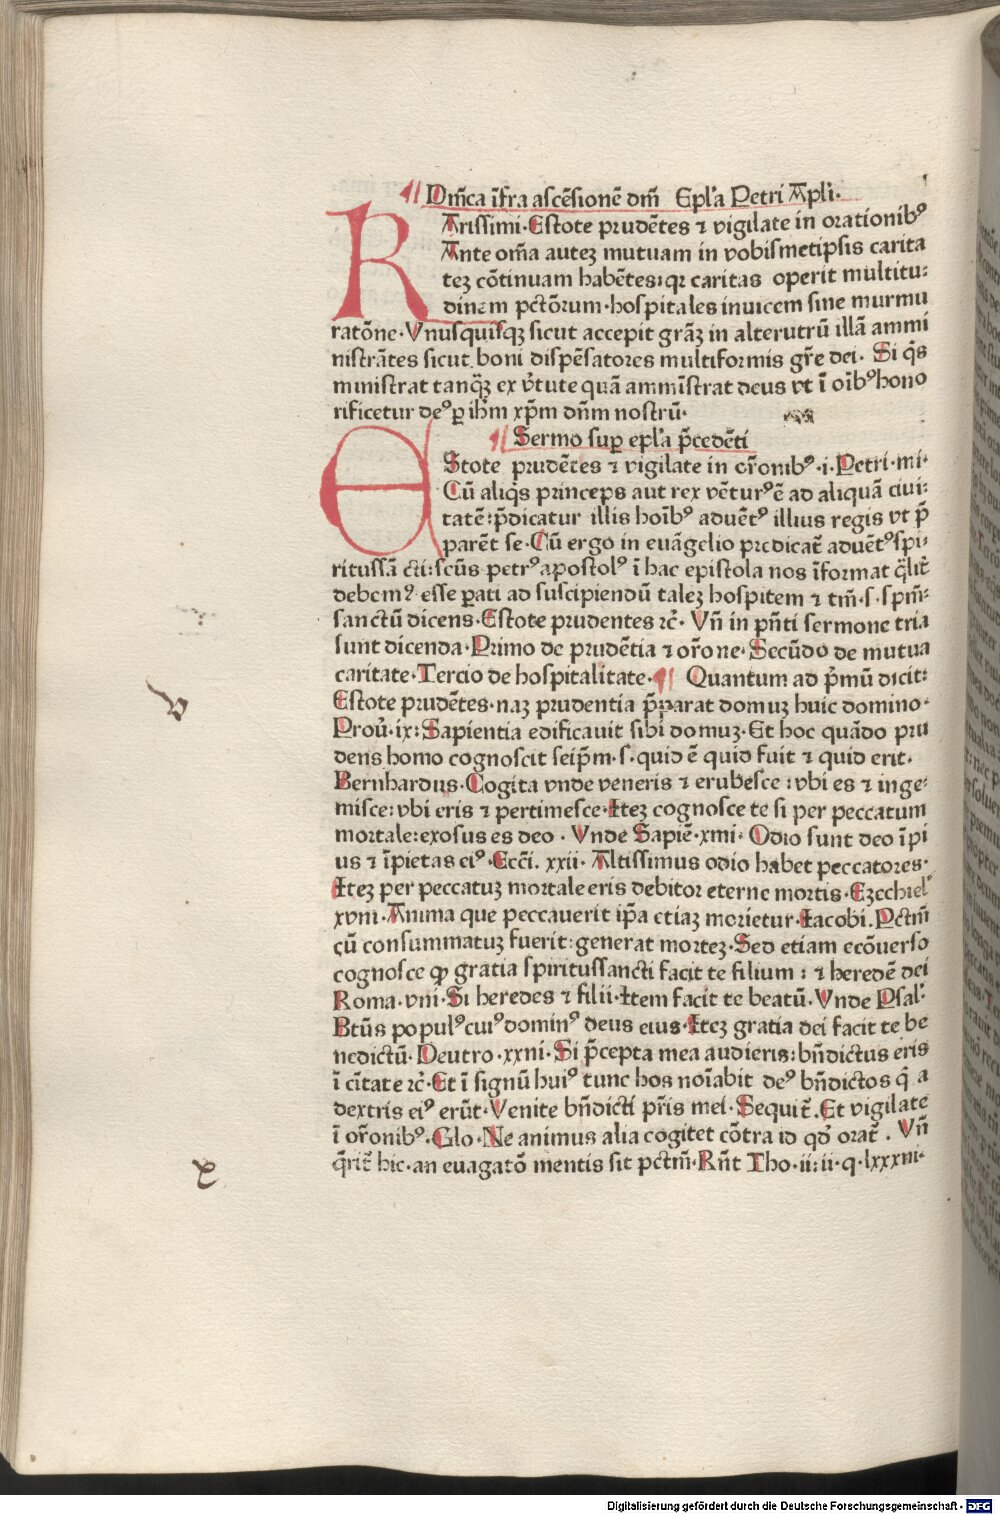 ¶ Dm̄ca īfra ascēsionē dm̄ Epl'a Petri Apl'i.
RArissimi·Estote prudētes ⁊ vigilate in orationibꝰ
Ante om̄a auteꝫ mutuam in vobismetipsis carita
teꝫ cōtinuam habētes:qꝛ caritas operit multitu:
dinem pctōrum·hospitales inuicem sine murmu
ratōne·Vnusquisqꝫ sicut accepit grāꝫ in alterutrū illā ammi
nistrātes sicut boni dispēsatores multiformis gr̄e dei· Si qͥs
ministrat tanqꝫ̄ ex v̓tute quā ammīstrat deus vt ī oībꝰ hono
rificetur deꝰ ꝑ ih̄m xp̄m dn̄m nostrū·
¶ Sermo suꝑ epl'a p̄cedēti
EStote prudētes ⁊ vigilate in or̄onibꝰ·i·Petri·iiii·
Cū aliqͥs princeps aut rex vētur᷒ ē ad aliquā ciui:
tatē:p̄dicatur illis hoībꝰ aduētꝰ illius regis vt p̄
parēt se·Cū ergo in euāgelio predicat̄ aduētꝰ spi:
ritussā cti:scūs petrꝰ apostolꝰ ī hac epistola nos īformat q̄lit̄
debemꝰ esse ꝑati ad suscipiendū taleꝫ hospitem ⁊ tm̄·s·spm̄:
sanctū dicens·Estote prudentes ⁊c̄· Vn̄ in pn̄ti sermone tria
sunt dicenda·Primo de prudētia ⁊ or̄one·Secūdo de mutua
caritate·Tercio de hospitalitate·¶ Quantum ad p̄mū dicit:
Estote prudētes·naꝫ prudentia p̄parat domuꝫ huic domino·
Prou̓·ix:Sapientia edificauit sibi domuꝫ·Et hoc quādo pru
dens homo cognoscit seip̄m·s·quid ē quid fuit ⁊ quid erit·
Bernhardus·Cogita vnde veneris ⁊ erubesce:vbi es ⁊ inge:
misce:vbi eris ⁊ pertimesce·Iteꝫ cognosce te si per peccatum
mortale:exosus es deo·Vnde Sapiē·xiiii·Odio sunt deo īpi
us ⁊ īpietas eiꝰ·Ecc̄i. xxii·Altissimus odio habet peccatores·
Iteꝫ per peccatuꝫ mortale eris debitor eterne mortis·Ezechielꝰ
xviii·Anima que peccauerit ip̄a etiaꝫ morietur·Iacobi.Pctm̄
cū consummatuꝫ fuerit:generat morteꝫ·Sed etiam ecōuerso
cognosce ꝙ gratia spiritussancti facit te filium: ⁊ heredē dei
Roma·viii·Si heredes ⁊ filii·Item facit te beatū·Vnde Psal·
Btūs populꝰ cuiꝰ dominꝰ deus eius·Iteꝫ gratia dei facit te be
nedictū·Deutro·xxiii·Si p̄cepta mea audieris:bn̄dictus eris
ī cītate ⁊c̄·Et ī signū huiꝰ tunc hos noīabit deꝰ bn̄dictos q̄ a
dextris eiꝰ erūt·Venite bn̄dicti pr̄is mei·Sequit̄.Et vigilate
ī or̄onibꝰ·Glo·Ne animus alia cogitet cōtra id qd̓ orat̄. Vn̄
q̄rit̄ hic·an euagatō mentis sit pctm̄·Rn̄t Tho·ii:ii·q·lxxxiii·
Digitalisierung gefördert durch die Deutsche Forschungsgemeinschaft · DFG